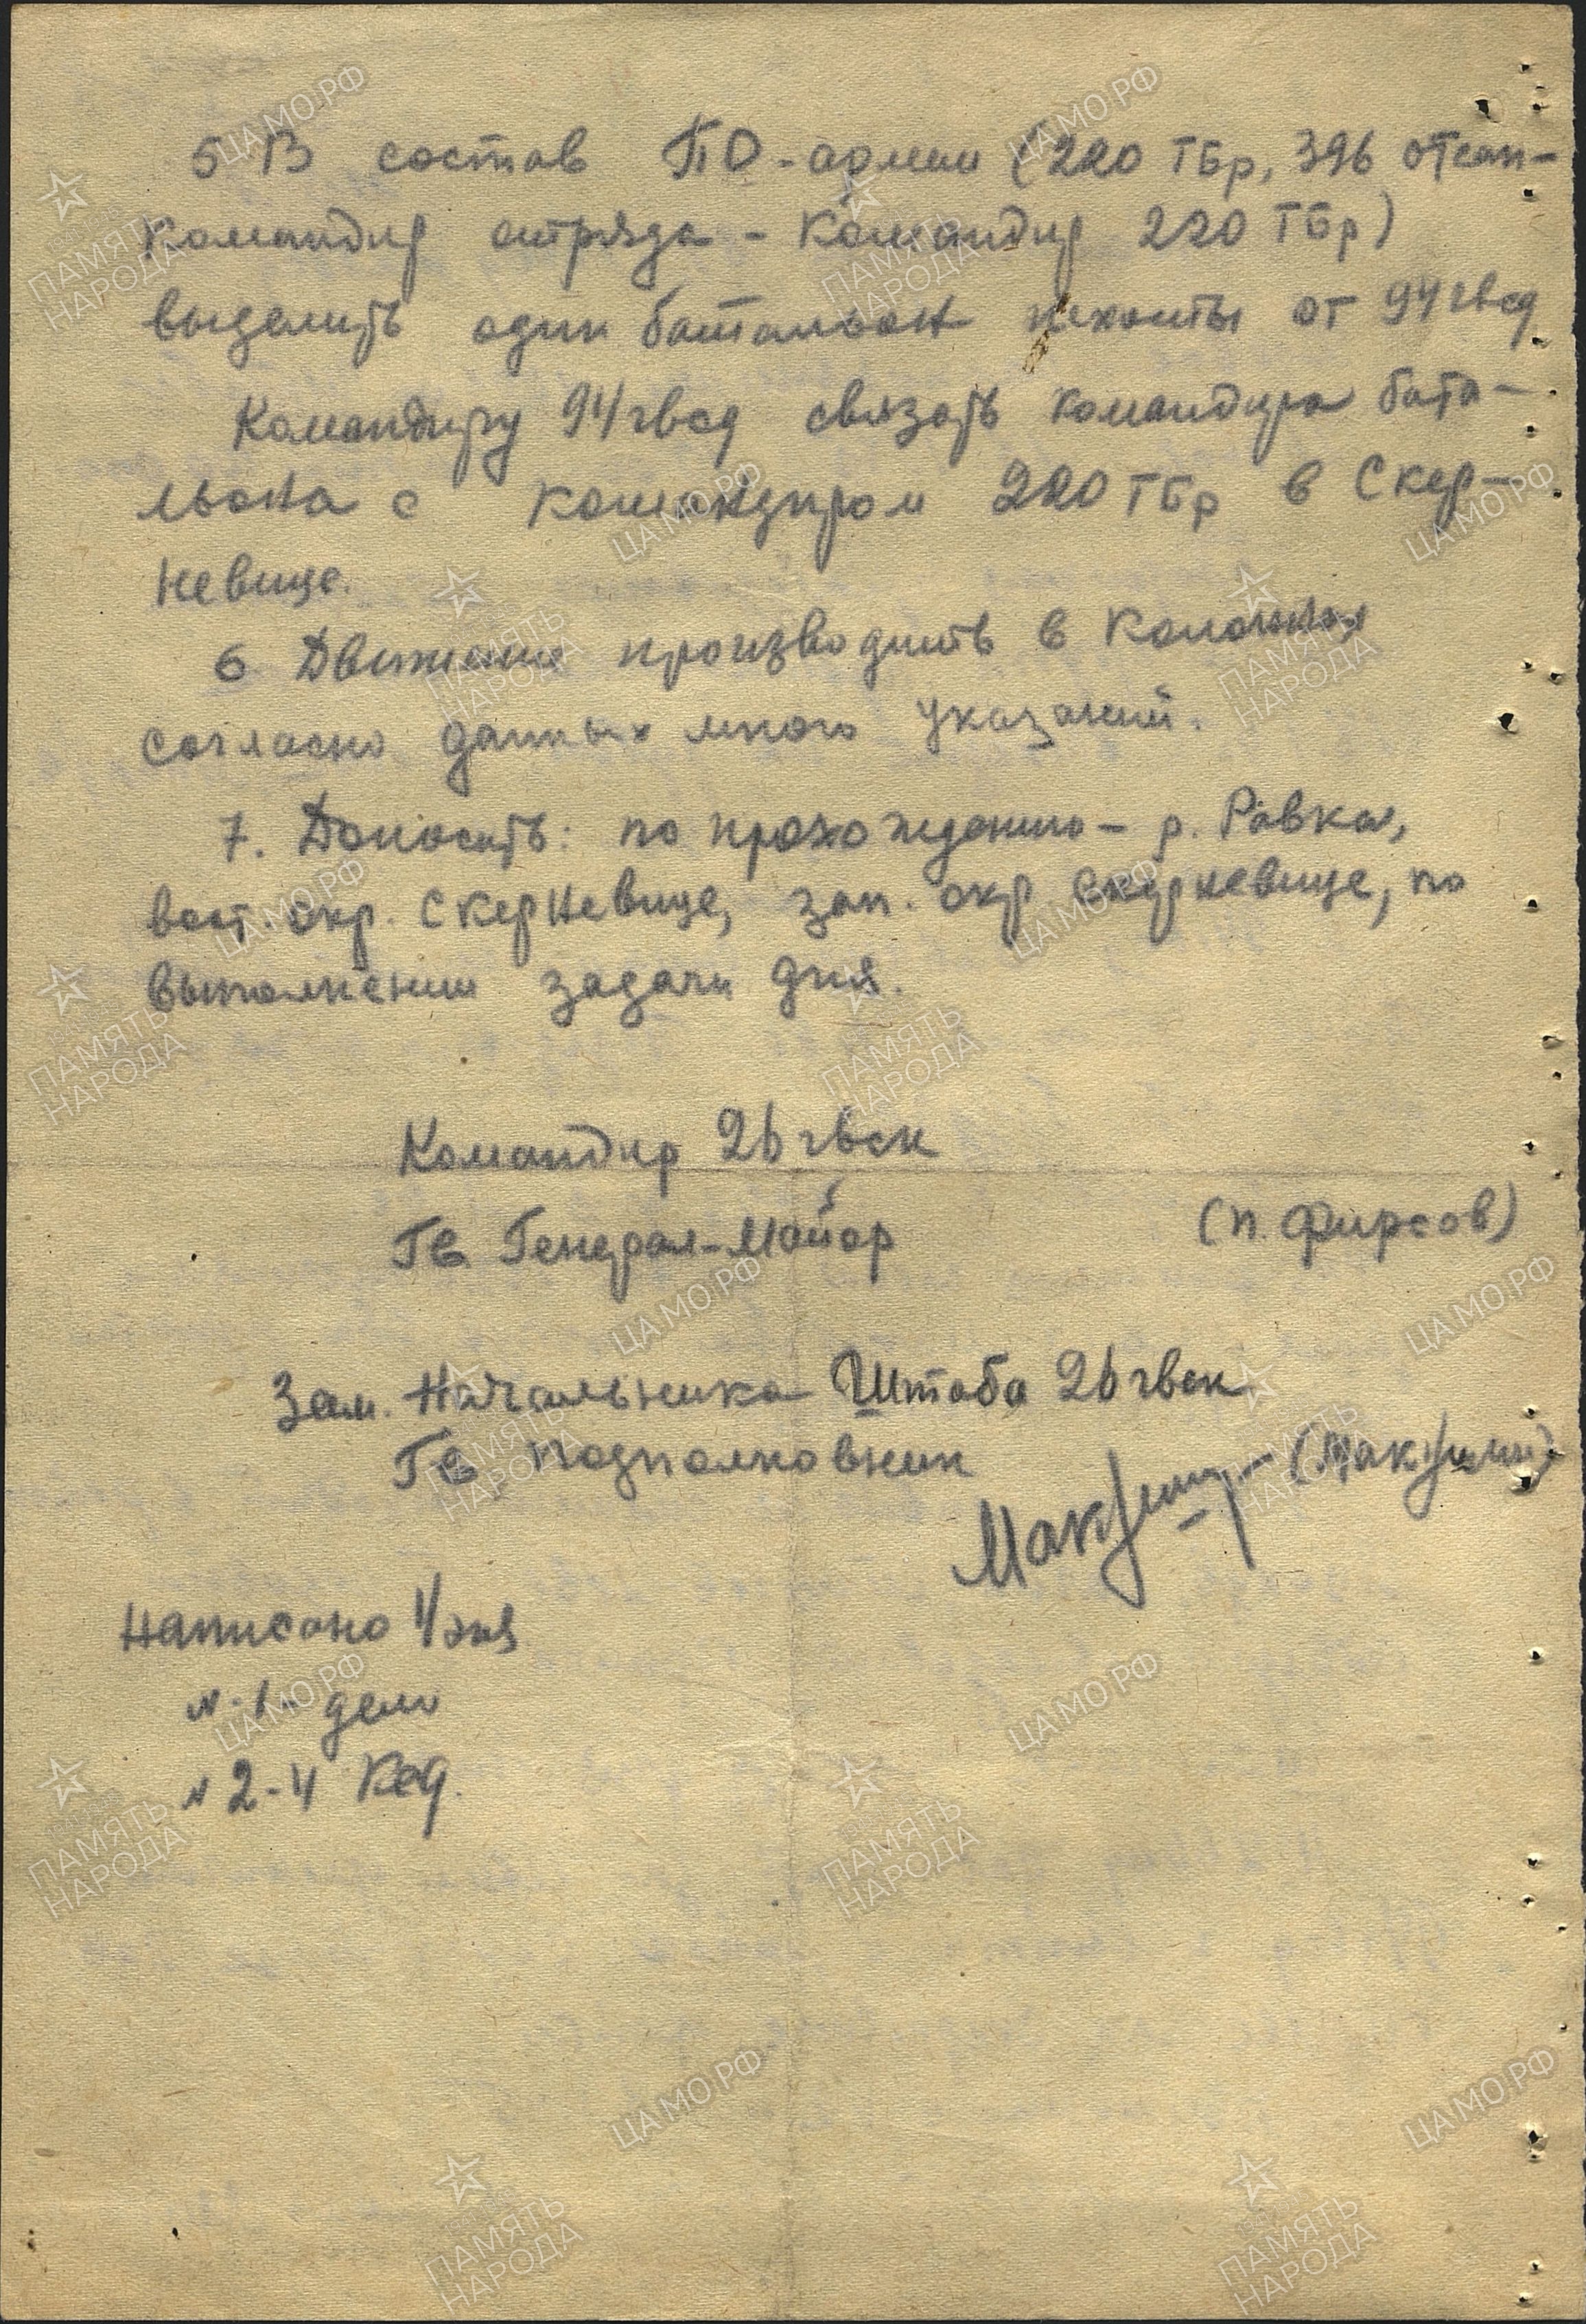 5 В состав ПО-армии (220 ТБр, 396 отсап-
командир отряда - командир 220 ТБр)
выделить один батальон пехоты от 94 гвсд
Командиру 94 гвсд связать командира бата-
льона с командиром 220 ТБр в Скер-
невице.
6 Движение производить в колоннах
согласно данных мною указаний.
7. Доносить: по прохождению - р. Равка,
вост. окр. Скерневице, зап. окр Скерневице, по
выполнении задачи дня.
Командир 26 гвск
Гв Генерал-Майор (п. Фирсов)
Зам. Начальника Штаба 26 гвск
Гв подполковник
Написано 4 экз
№ 1 - дело
№ 2-4 Ксд.